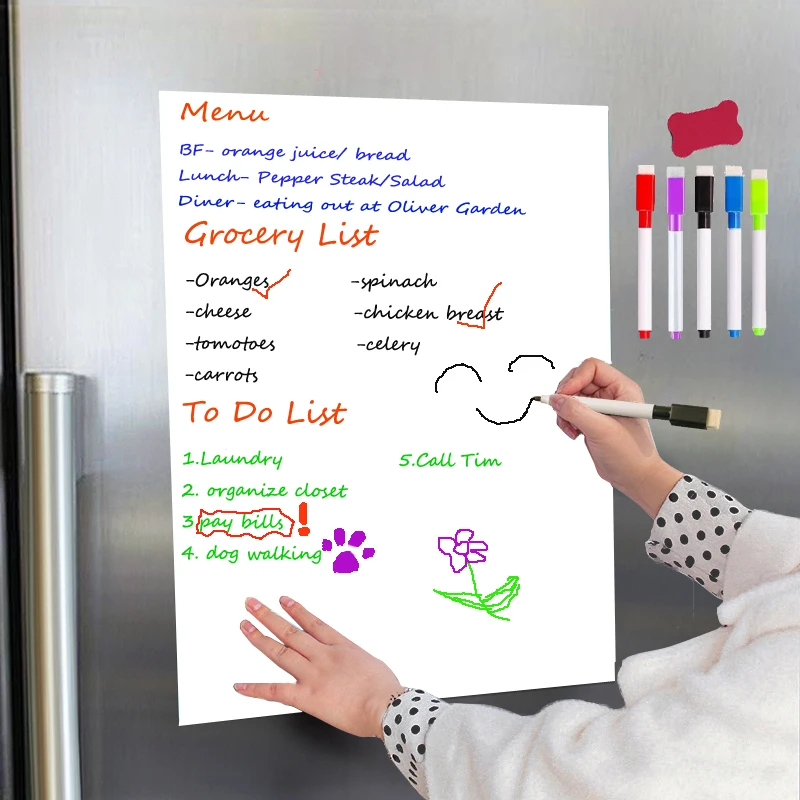 Menu
BF- orange juice/ bread
Lunch- Pepper Steak/Salad
Diner- eating out at Oliver Garden
Grocery List
-Oranges
-cheese
-tomotoes
-carrots
-spinach
-chicken breast
-celery
To Do List
1.Laundry
2. organize closet
3 pay bills !
4. dog walking
5.Call Tim